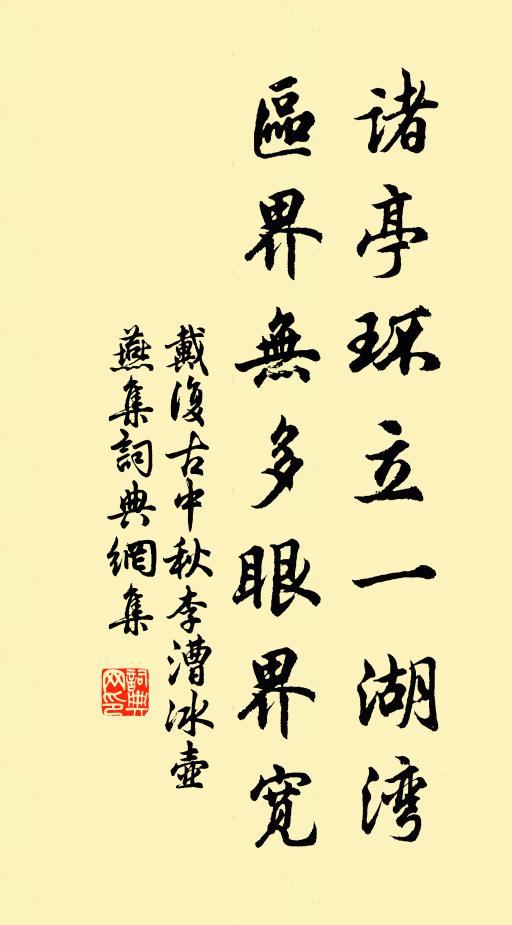 诸亭环立一湖湾
區界無多眼界寬
戴復古中秋李漕冰壺
燕集詞典網集
詞典网印